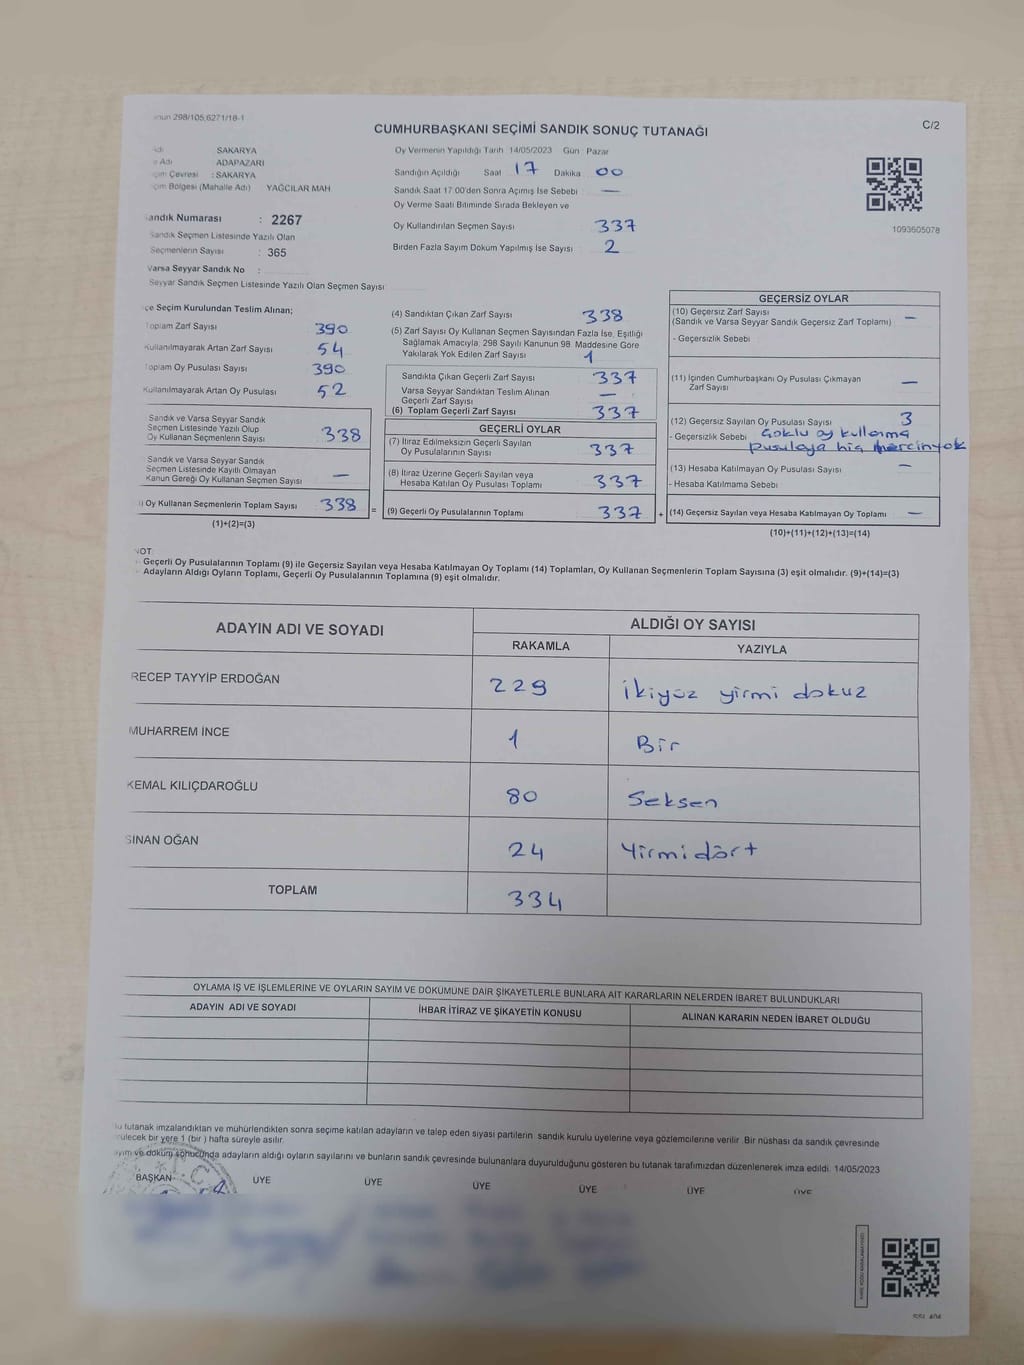 298/105,6271/18-1
C/2
CUMHURBAŞKANI SEÇİMİ SANDIK SONUÇ TUTANAĞI
SAKARYA
Adı ADAPAZARI
Çevresi : SAKARYA
Bölgesi (Mahalle Adı) YAĞCILAR MAH.
Sandık Numarası : 2267
Sandık Seçmen Listesinde Yazılı Olan
Seçmenlerin Sayısı : 365
Varsa Seyyar Sandık No :
Seyyar Sandık Seçmen Listesinde Yazılı Olan Seçmen Sayısı
Oy Vermenin Yapıldığı Tarih 14/05/2023 Gün Pazar
Sandığın Açıldığı Saat 17 Dakika 00
Sandık Saat 17:00'den Sonra Açımış İse Sebebi —
Oy Verme Saati Bitiminde Sırada Bekleyen ve
Oy Kullandırılan Seçmen Sayısı 337
Birden Fazla Sayım Döküm Yapılmış İse Sayısı 2
1093605078
çe Seçim Kurulundan Teslim Alınan;
Toplam Zarf Sayısı 390
Kullanılmayarak Artan Zarf Sayısı 54
Toplam Oy Pusulası Sayısı 390
Kullanılmayarak Artan Oy Pusulası 52
Sandık ve Varsa Seyyar Sandık
Seçmen Listesinde Yazılı Olup
Oy Kullanan Seçmenlerin Sayısı 338
Sandık ve Varsa Seyyar Sandık
Seçmen Listesinde Kayıtlı Olmayan
Kanun Gereği Oy Kullanan Seçmen Sayısı —
) Oy Kullanan Seçmenlerin Toplam Sayısı 338 =
(1)+(2)=(3)
(4) Sandıktan Çıkan Zarf Sayısı 338
(5) Zarf Sayısı Oy Kullanan Seçmen Sayısından Fazla İse, Eşitliği
Sağlamak Amacıyla, 298 Sayılı Kanunun 98. Maddesine Göre
Yakılarak Yok Edilen Zarf Sayısı 1
Sandıkta Çıkan Geçerli Zarf Sayısı 337
Varsa Seyyar Sandıktan Teslim Alınan
Geçerli Zarf Sayısı —
(6) Toplam Geçerli Zarf Sayısı 337
GEÇERLİ OYLAR
(7) İtiraz Edilmeksizin Geçerli Sayılan
Oy Pusulalarının Sayısı 337
(8) İtiraz Üzerine Geçerli Sayılan veya
Hesaba Katılan Oy Pusulası Toplamı 337
(9) Geçerli Oy Pusulalarının Toplamı 337 +
GEÇERSİZ OYLAR
(10) Geçersiz Zarf Sayısı
(Sandık ve Varsa Seyyar Sandık Geçersiz Zarf Toplamı) —
- Geçersizlik Sebebi
(11) İçinden Cumhurbaşkanı Oy Pusulası Çıkmayan
Zarf Sayısı —
(12) Geçersiz Sayılan Oy Pusulası Sayısı 3
- Geçersizlik Sebebi Çoklu oy kullanma
pusulaya hiç
(13) Hesaba Katılmayan Oy Pusulası Sayısı —
- Hesaba Katılmama Sebebi
(14) Geçersiz Sayılan veya Hesaba Katılmayan Oy Toplamı —
(10)+(11)+(12)+(13)=(14)
NOT
- Geçerli Oy Pusulalarının Toplamı (9) ile Geçersiz Sayılan veya Hesaba Katılmayan Oy Toplamı (14) Toplamları, Oy Kullanan Seçmenlerin Toplam Sayısına (3) eşit olmalıdır. (9)+(14)=(3)
- Adayların Aldığı Oyların Toplamı, Geçerli Oy Pusulalarının Toplamına (9) eşit olmalıdır.
ADAYIN ADI VE SOYADI ALDIĞI OY SAYISI
RAKAMLA YAZIYLA
RECEP TAYYİP ERDOĞAN 229 ikiyüz yirmi dokuz
MUHARREM İNCE 1 Bir
KEMAL KILIÇDAROĞLU 80 Seksen
SİNAN OĞAN 24 Yirmi dört
TOPLAM 334
OYLAMA İŞ VE İŞLEMLERİNE VE OYLARIN SAYIM VE DÖKÜMÜNE DAİR ŞİKAYETLERLE BUNLARA AİT KARARLARIN NELERDEN İBARET BULUNDUKLARI
ADAYIN ADI VE SOYADI İHBAR İTİRAZ VE ŞİKAYETİN KONUSU ALINAN KARARIN NEDEN İBARET OLDUĞU
tutanak imzalandıktan ve mühürlendikten sonra seçime katılan adayların ve talep eden siyasi partilerin sandık kurulu üyelerine veya gözlemcilerine verilir. Bir nüshası da sandık çevresinde
bir yere 1 (bir) hafta süreyle asılır.
ve döküm sonucunda adayların aldığı oyların sayılarını ve bunların sandık çevresinde bulunanlara duyurulduğunu gösteren bu tutanak tarafımızdan düzenlenerek imza edildi. 14/05/2023
BAŞKAN ÜYE ÜYE ÜYE ÜYE ÜYE ÜYE
T.C.